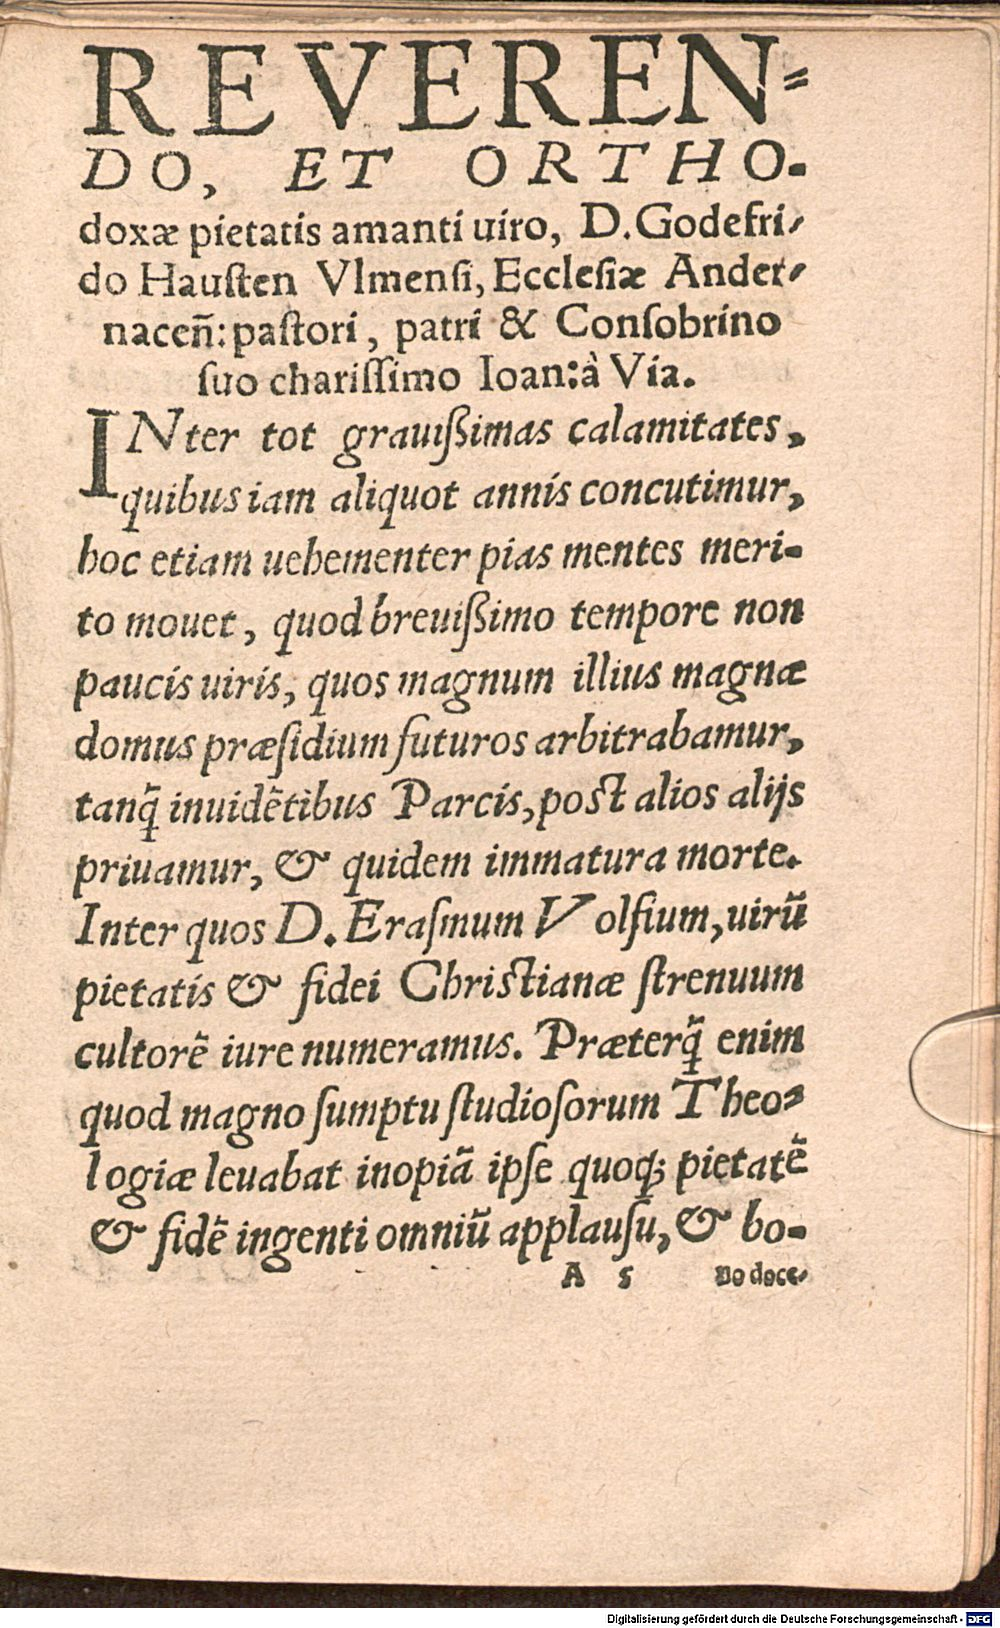 REVEREN-
DO, ET ORTHO-
doxæ pietatis amanti uiro, D. Godefri-
do Hauſten Vlmenſi, Eccleſiæ Ander-
nacen̄: paſtori, patri & Conſobrino
ſuo chariſſimo Ioan: à Via.
INter tot grauißimas calamitates,
quibus iam aliquot annis concutimur,
hoc etiam uehementer pias mentes meri-
to mouet, quod breuißimo tempore non
paucis uiris, quos magnum illius magnæ
domus præſidium futuros arbitrabamur,
tanq̃ inuidẽtibus Parcis, post alios alijs
priuamur, & quidem immatura morte.
Inter quos D. Eraſmum Volfium, uirũ
pietatis & fidei Christianæ ſtrenuum
cultorẽ iure numeramus. Præterq̃ enim
quod magno ſumptu ſtudioſorum Theo-
logiæ leuabat inopiã ipſe quoq; pietatẽ
& fidẽ ingenti omniũ applauſu, & bo-
A 5 no doce-
Digitalisierung gefördert durch die Deutsche Forschungsgemeinschaft - DFG